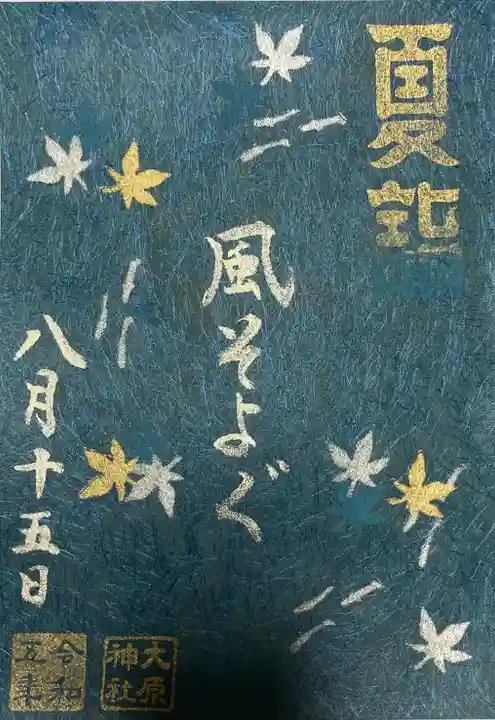 夏詣
風そよぐ
八月十五日
大原
神社
令和
五年